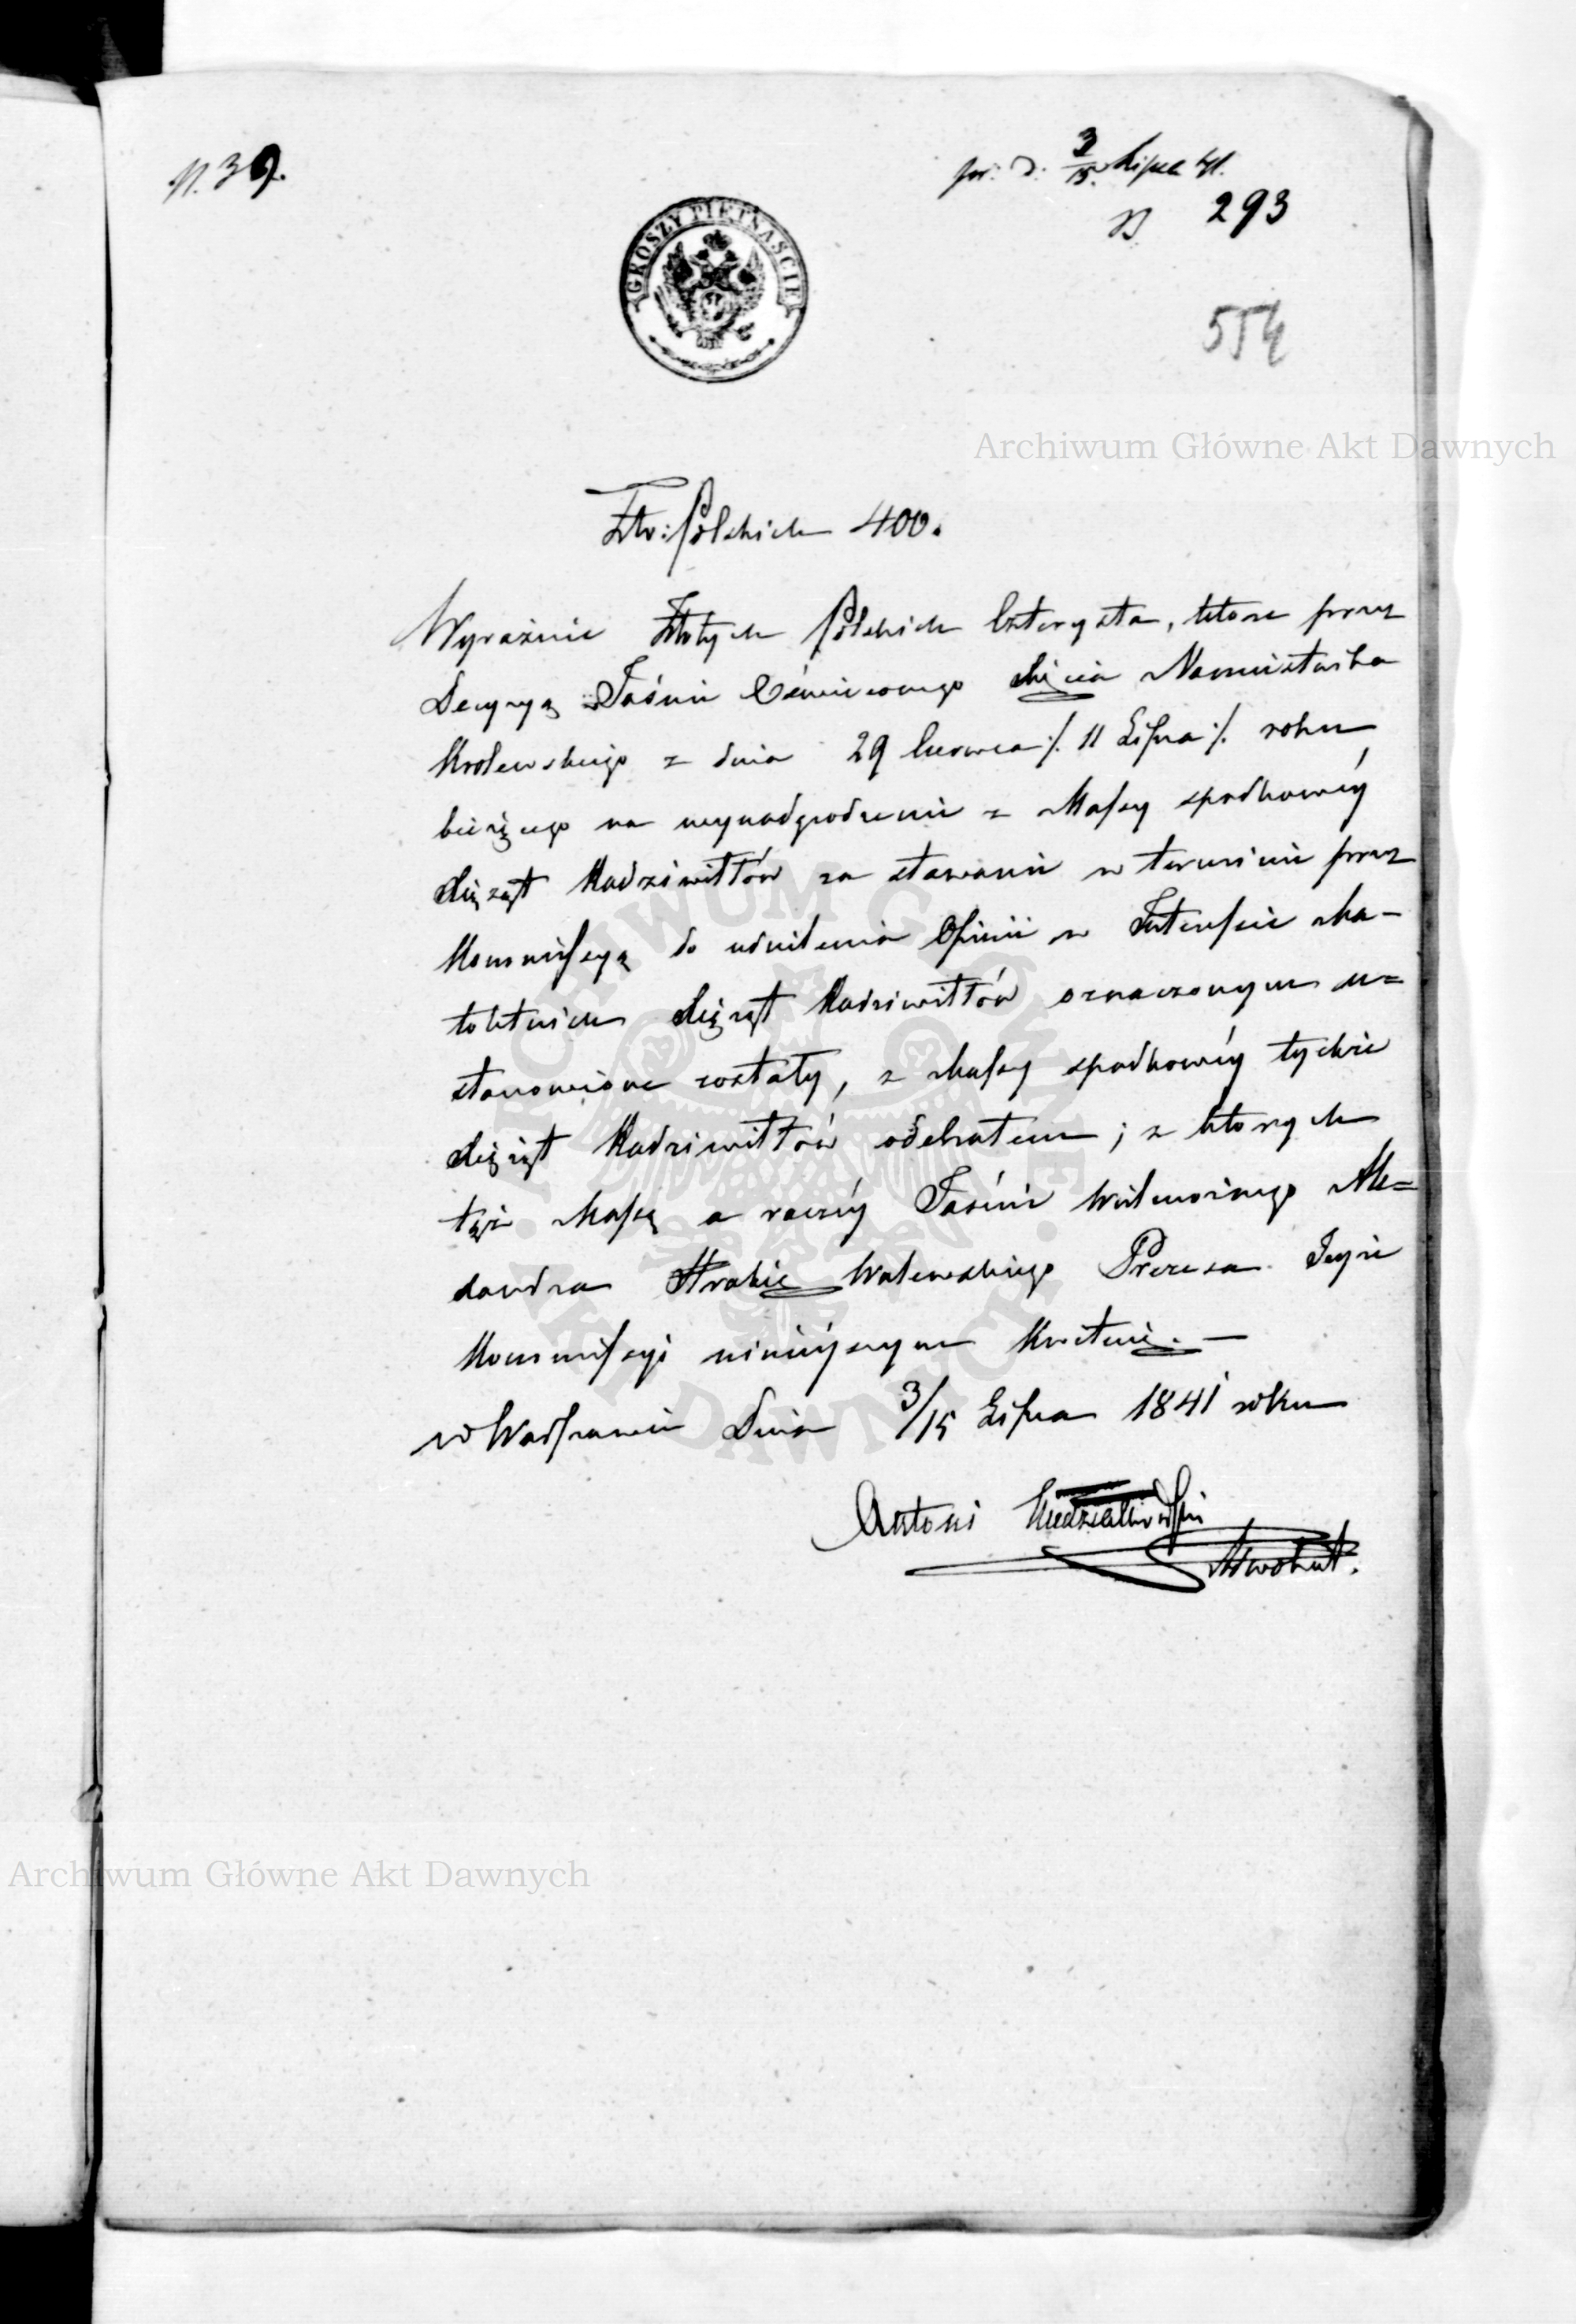 N. 39.
pr: D. 3/15. Lipca 41.
N 293
554
GROSZY PIĘTNAŚCIE
Archiwum Główne Akt Dawnych
Złt: Polskich 400.
Wyraźnie Złotych Polskich Czterysta, które przez
Decyzyą Jaśnie Oświeconego Xięcia Namiestnika
Krolewskiego z dnia 29 Czerwca /. 11 Lipca /. roku
bieżącego na wynadgrodzenie z Massy spadkowéy
Xiążąt Radziwiłłów za stawanie w terminie przez
Kommissyą do udzielenia Opinii w Interessie Ma-
toletnich Xiążąt Radziwiłłów oznaczonym u=
stanowione zostały, z Massy spadkowéy tychże
Xiążąt Radziwiłłów odebrałem; z których
tęż Massę a raczéy Jaśnie Wielmożnego Ale=
xandra Hrabię Walewskiego Prezesa Teyże
Kommissyi ninieyszym kwituię. —
w Warszawie Dnia 3/15 Lipca 1841 roku
Antoni
Adwokat.
Archiwum Główne Akt Dawnych
ARCHIWUM GŁÓWNE AKT DAWNYCH